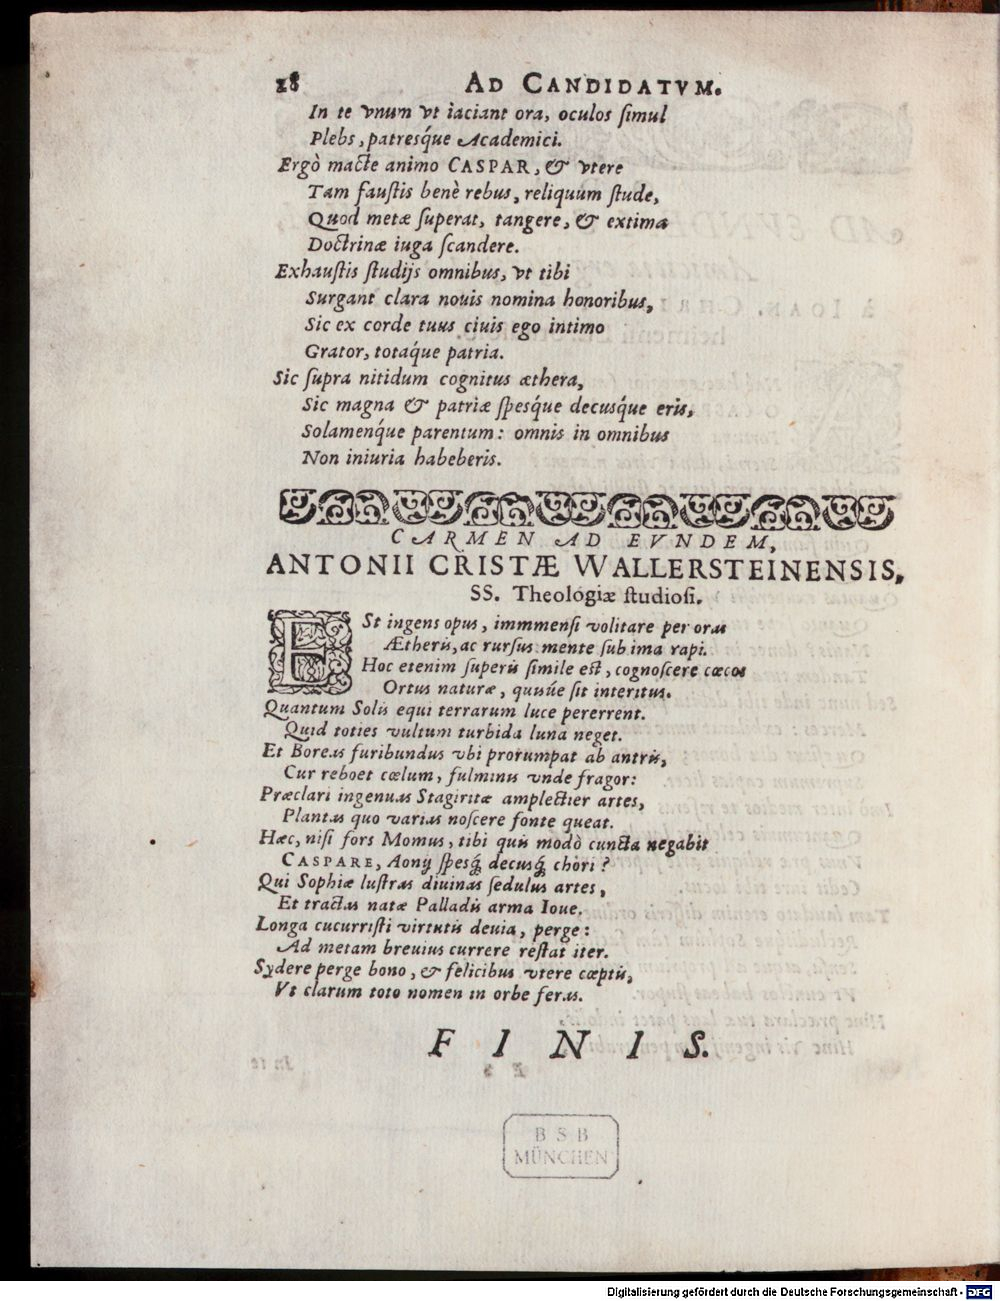 28 AD CANDIDATVM.
In te vnum vt iaciant ora, oculos ſimul
Plebs, patresq́ue Academici.
Ergò macte animo CASPAR, & vtere
Tam fauſtis benè rebus, reliquum ſtude,
Quod metæ ſuperat, tangere, & extima
Doctrinæ iuga ſcandere.
Exhauſtis ſtudijs omnibus, vt tibi
Surgant clara nouis nomina honoribus,
Sic ex corde tuus ciuis ego intimo
Grator, totaq́ue patria.
Sic ſupra nitidum cognitus æthera,
Sic magna & patriæ ſpesq́ue decusq́ue eris,
Solamenq́ue parentum: omnis in omnibus
Non iniuria habeberis.
CARMEN AD EVNDEM,
ANTONII CRISTÆ WALLERSTEINENSIS,
SS. Theologiæ ſtudioſi.
ESt ingens opus, immmenſi volitare per oras
Ætheris, ac rurſus mente ſub ima rapi.
Hoc etenim ſuperis ſimile eſt, cognoſcere cæcos
Ortus naturæ, quisúe ſit interitus.
Quantum Solis equi terrarum luce pererrent.
Quid toties vultum turbida luna neget.
Et Boreas furibundus vbi prorumpat ab antris,
Cur reboet cœlum, fulminis vnde fragor:
Præclari ingenuas Stagiritæ amplectier artes,
Plantas quo varias noſcere fonte queat.
Hæc, niſi fors Momus, tibi quis modò cuncta negabit
CASPARE, Aonij ſpesq́; decusq́; chori?
Qui Sophiæ luſtras diuinas ſedulus artes,
Et tractas natæ Palladis arma Ioue.
Longa cucurriſti virtutis deuia, perge:
Ad metam breuius currere reſtat iter.
Sydere perge bono, & felicibus vtere cœptis,
Vt clarum toto nomen in orbe feras.
FINIS.
BSB
MÜNCHEN
Digitalisierung gefördert durch die Deutsche Forschungsgemeinschaft - DFG